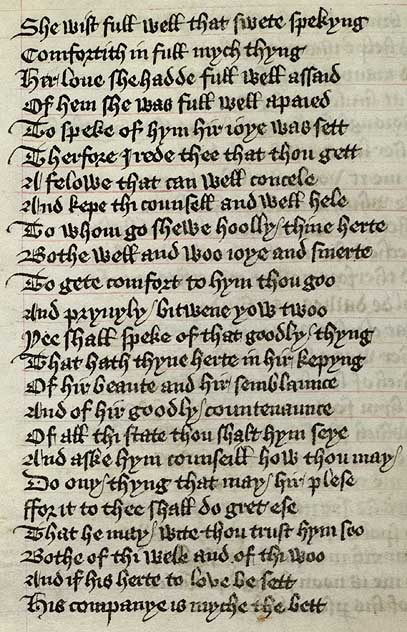 She wist full well that swete spekyng
Comfortith in full mych thyng
Hir loue she hadde full well assaid
Of hem she was full well apaied
To speke of hym hir ioye was sett
Therfore I rede thee that thou gett
A felowe that can well concele
And kepe thi counsell and well hele
To whom go shewe hoolly / thine herte
Bothe well and woo ioye and smerte
To gete comfort to hym thou goo
And pryuyly / bitwene yow twoo
Yee shall speke of that goodly / thyng
That hath thyne herte in hir kepyng
Of hir beaute and hir semblaunce
And of hir goodly / countenaunce
Of all thi state thou shalt hym seye
And aske hym counseill how thou may /
Do ony / thyng that may / hir plese
ffor it to thee shall do gret ese
That he may / wite thou trust hym soo
Bothe of thi wele and of thi woo
And if his herte to love be sett
His companye is myche the bett